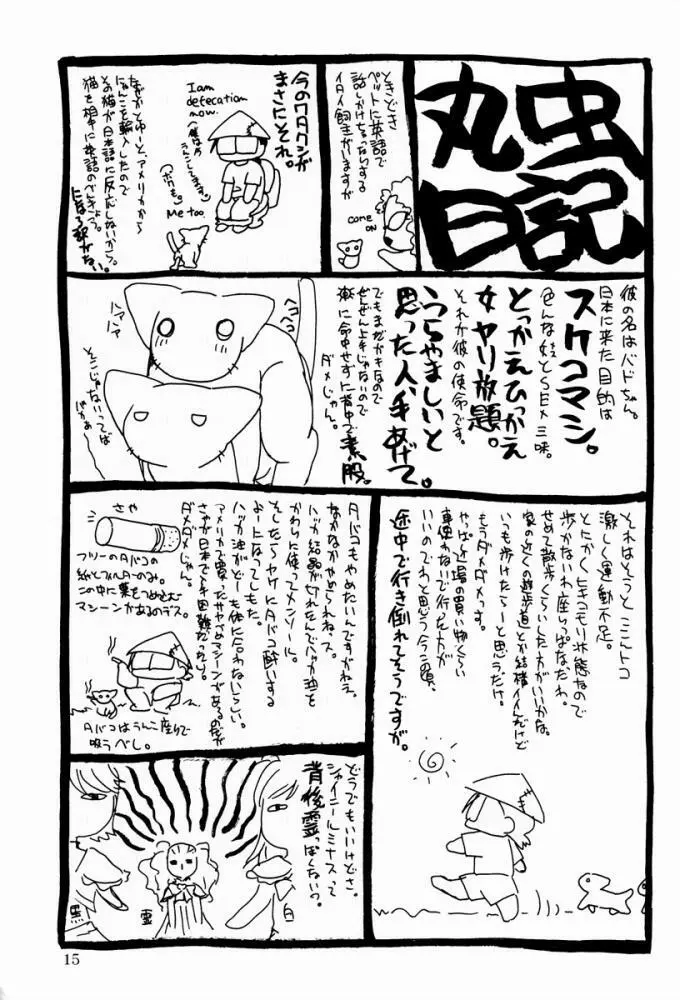 丸虫
日記
ときどき
ペットに英語で
話しかけちゃったりする
イタイ飼主がいますが
come
on
今のワタクシが
まさにソレ。
I am
defecation
now.
Me too
なぜかとゆーとアメリカから
にゃんこを輸入したので
その猫が日本語に反応しないから。
猫を相手に英語のべんきょう。
になる訳がない。
彼の名はバドちゃん。
日本に来た目的は
スケコマシ。
色んな娘とSEX三昧。
とっかえひっかえ
女ヤリ放題。
それが彼の使命です。
うらやましいと
思った人、手あげて。
でもまだガキなので
ぜんぜん上手じゃないので
楽に命中せずに背中で素股。
ダメじゃん。
ヘコヘコ
ハァハァ
そこじゃないってば
ばかぁー
それはそうとミントコ
激しく運動不足。
とにかくヒキコモリ状態なので
歩かないわ座りっぱなだわ。
せめて散歩くらいした方がいいかな。
家の近くの遊歩道とか結構イイんだけど
いつも歩けたらーと思うだけ。
もうダメダメっす。
やっぱ近場の買い物くらい
車使わないで行った方が
いいのでわと思う今日この頃、
途中で行き倒れてそうですが。
タバコもやめたいんですがねえ。
なかなかやめられねぇス。
ハッカ結晶が切れたんでハッカ油を
かわりに使ってメンソール。
そしたらヤケにタバコ酔いする
よーになってしもた。
ハッカ油がどーも体に合わないらしい。
アメリカで買ったサヤづめマシーンがあるのだが
さやが日本で入手困難だったり。
ダメダメじゃん。
さや
フリーのタバコの
紙とフィルターのみ。
この中に葉をつめ込む
マシーンがあるのデス。
タバコはうんこ座りで
吸うべし。
どうでもいいけどさ、
シャイニールミナスって
背後霊っぽくないっ?
黒
霊
白
15